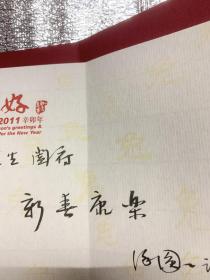 好
2011 辛卯年
son's greetings &
for the New Year
生 阖府
新春康乐